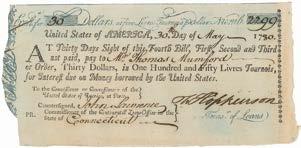 for 30 Dollars, at five Livres Tournois per Dollar Numb. 2299
United States of AMERICA, 30. Day of May 1780.
AT Thirty Days Sight of this Fourth Bill, First, Second and Third
not paid, pay to Mr. Thomas Mumford
or Order, Thirty Dollars, in One Hundred and Fifty Livres Tournois,
for Interest due on Money borrowed by the United States.
To the Commissioner or Commissioners of the
United States of America, at Paris.
Countersigned, John Lawrence
Commissioner of the Continental Loan-Office in the
State of Connecticut
F Hopkinson
Treasr. of Loans